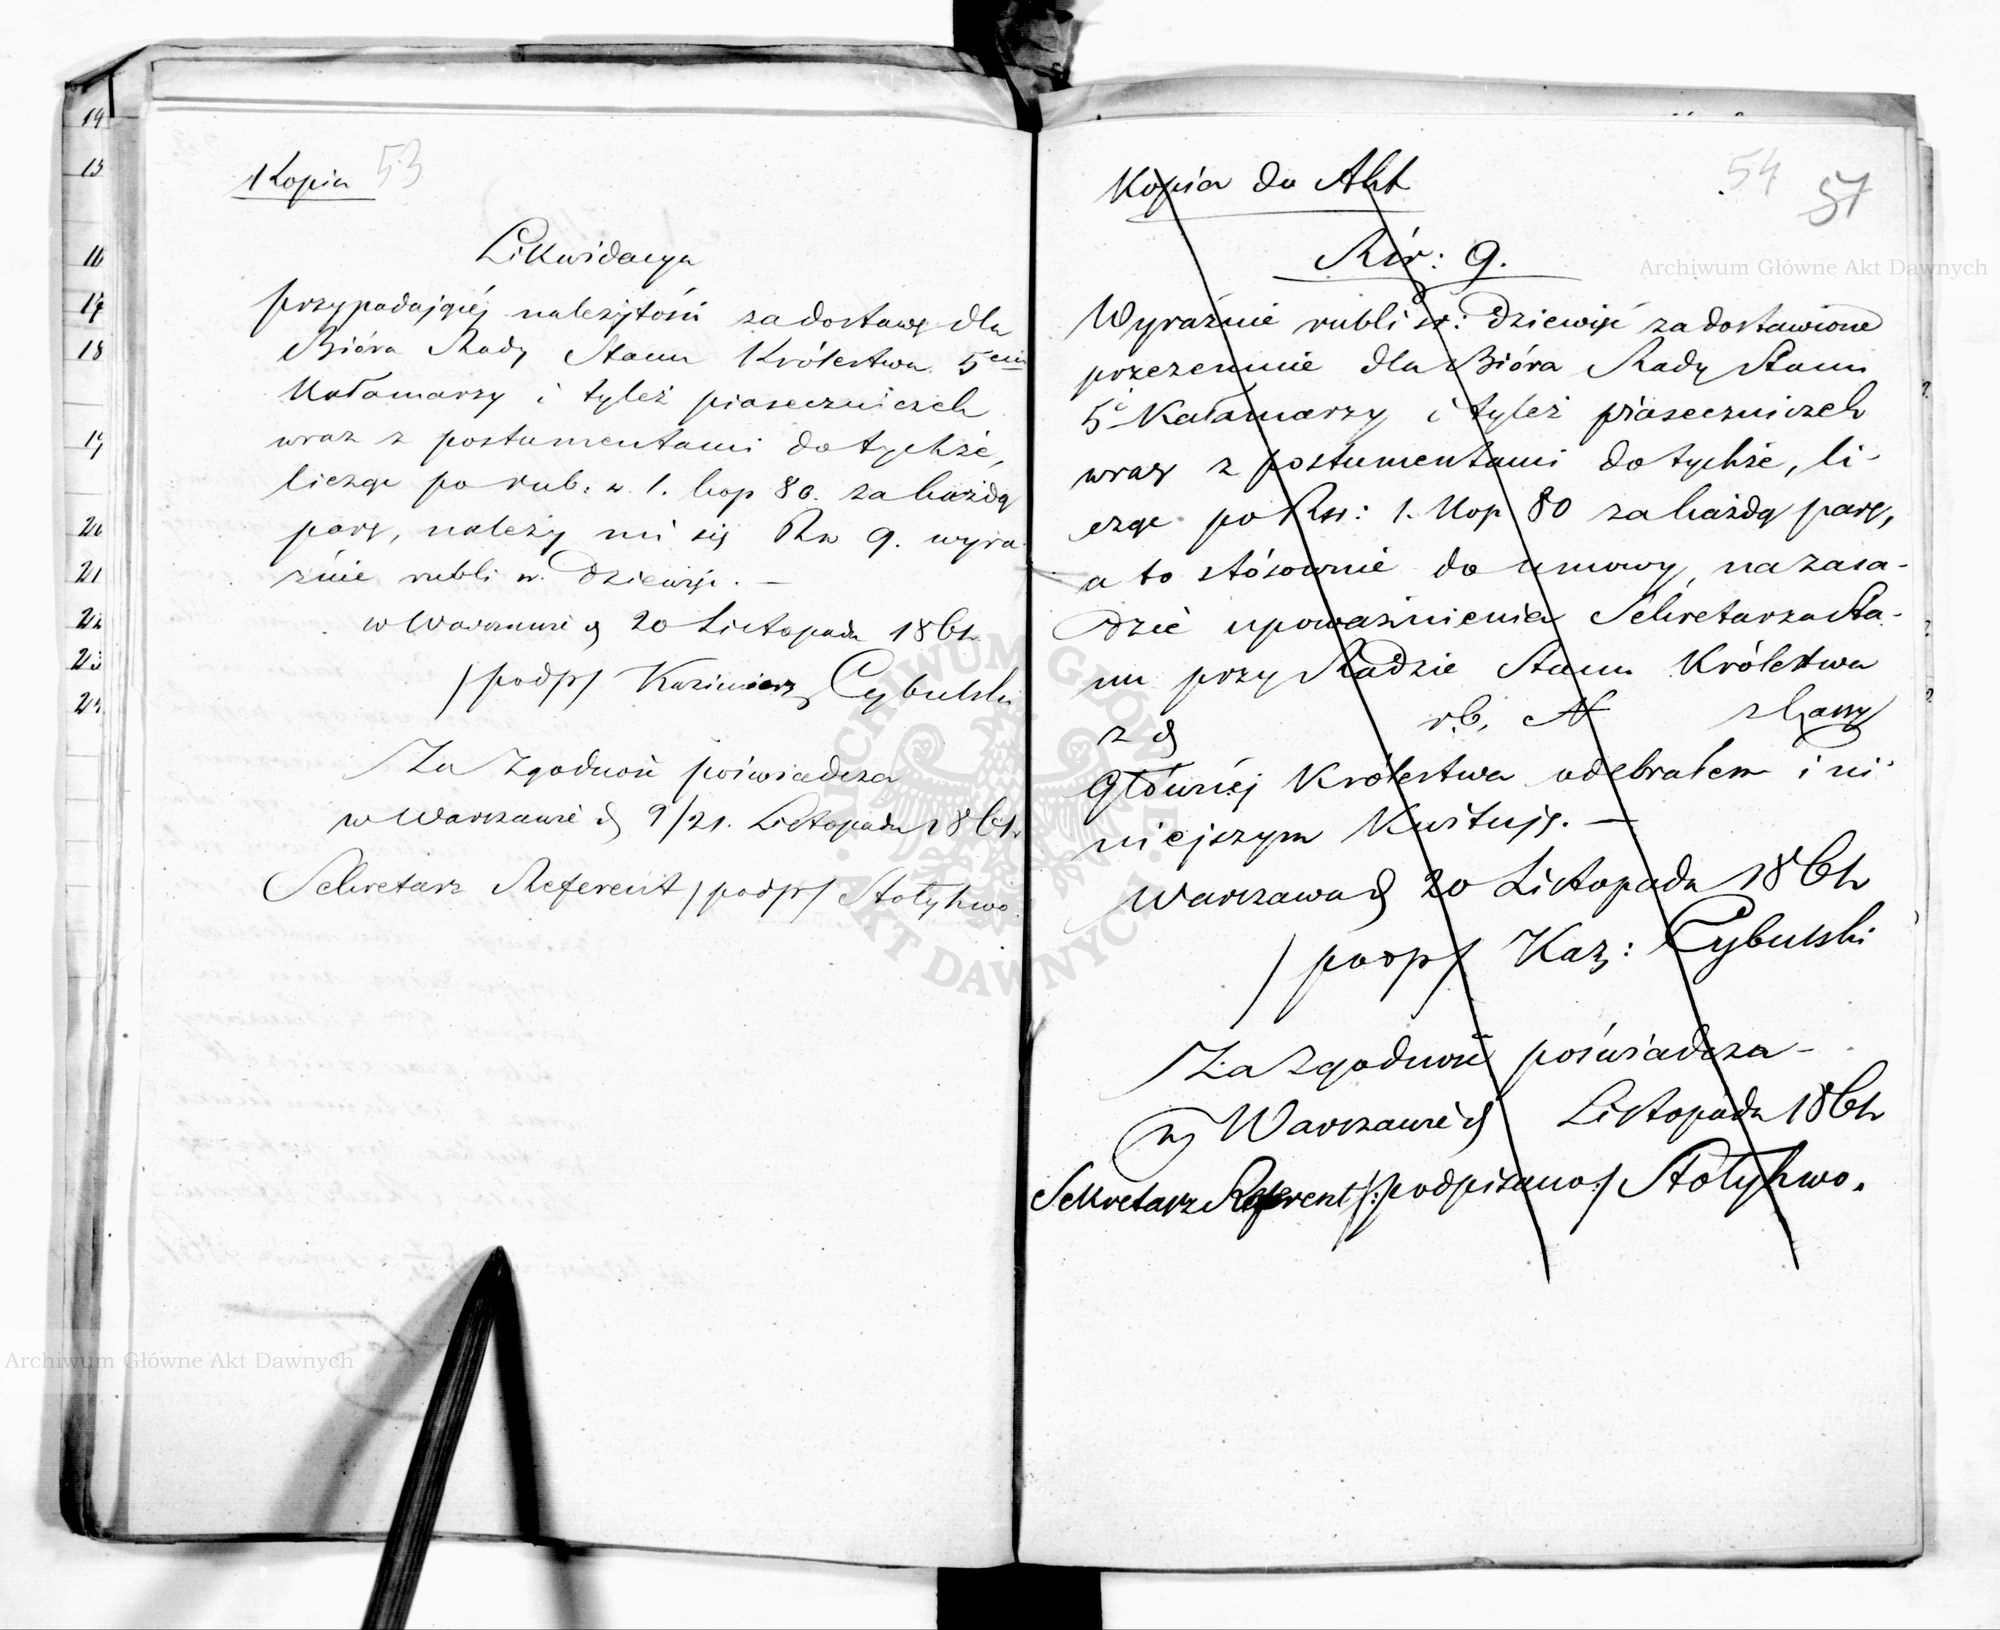 14
15
16
17
18
19
20
21
22
23
24
Kopia 53
Likwidacya
przypadającej należytości za dostawę dla
Bióra Rady Stanu Królestwa 5ciu
Kałamarzy i tyleż piaseczniczek
wraz z postumentami do tychże,
licząc po rub: sr. 1. kop 80. za każdą
parę, należy mi się Rsr 9. wyra
źnie rubli sr. dziewięć. —
w Warszawie d 20 Listopada 1861 r.
/podp/ Kazimierz Cybulski
Za zgodność poświadcza
w Warszawie d 9/21. Listopada 1861 r.
Sekretarz Referent /podp/ Stołyhwo.
Kopia do Akt
54 51
Rsr: 9.
Wyraźnie rubli sr: dziewięć za dostawione
przezemnie dla Bióra Rady Stanu
5 Kałamarzy i tyleż piaseczniczek
wraz z postumentami do tychże, li-
cząc po Rsr: 1. Kop 80 za każdą parę,
a to stósownie do umowy, na zasa-
dzie upoważnienia Sekretarza Sta-
nu przy Radzie Stanu Królestwa
z d r.b. N z Kassy
Głównej Królestwa odebrałem i ni-
niejszym Kwituję. —
Warszawa d 20 Listopada 1861 r
/podp/ Kaz: Cybulski
Za zgodność poświadcza —
w Warszawie d Listopada 1861 r
Sekretarz Referent /:podpisano:/ Stołyhwo.
Archiwum Główne Akt Dawnych
Archiwum Główne Akt Dawnych
ARCHIWUM GŁÓWNE AKT DAWNYCH